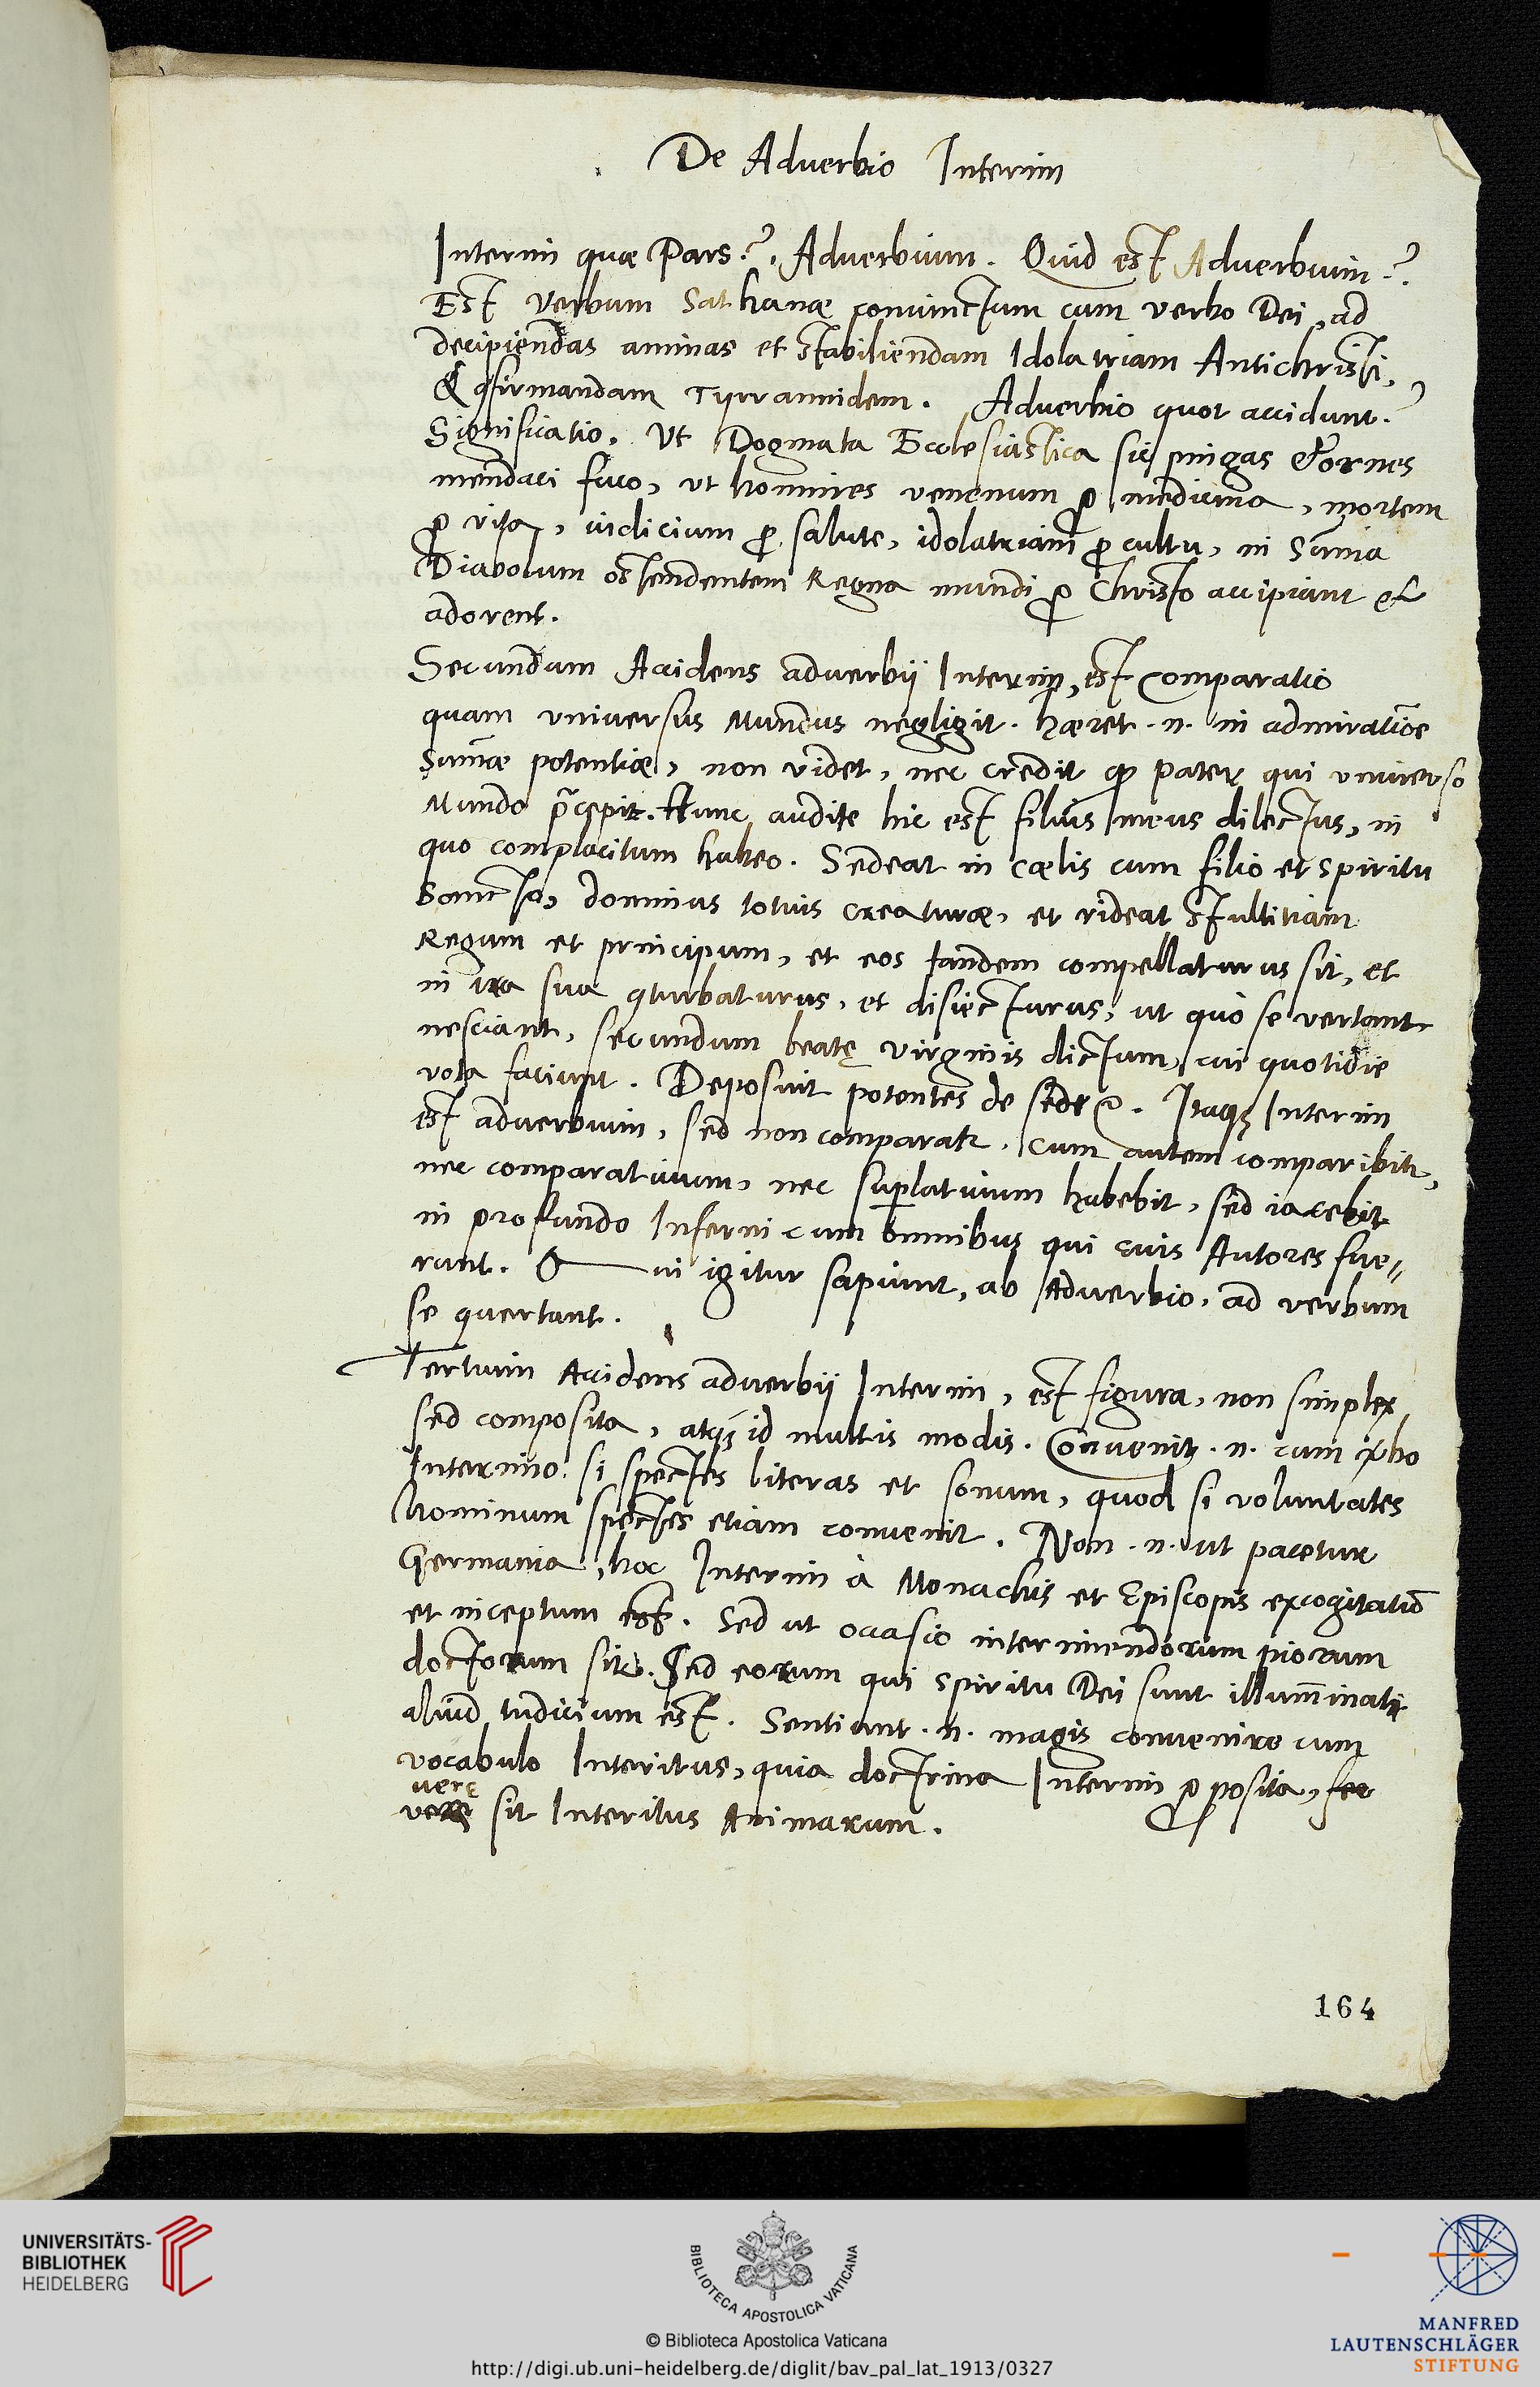 De Adverbio Interim
Interim quæ Pars.? Adverbium. Quid est Adverbium.?
Est verbum Sathanæ coniunctum cum verbo Dei, ad
decipiendas animas et stabiliendam Idolatriam Antichristi,
& ꝯfirmandam Tyrannidem. Adverbio quot accidunt.?
Significatio. Ut Dogmata Ecclesiastica sic pingas & ornes
mendaci fuco, ut homines venenum ꝓ medicina, mortem
ꝓ vita, iudicium ꝓ salute, idolatriam ꝓ cultu, in Sum̄a
Diabolum ostendentem Regna mundi ꝓ Christo accipiant et
adorent.
Secundum Accidens adverbij Interim, est Comparatio
quam universus Mundus negligit. Hæret .n. in admiratiōe
sum̄æ potentiæ, non videt, nec credit ꝙ pater qui universo
Mundo p̄cepit. Hunc audite hic est filius meus dilectus, in
quo complacitum habeo. Sedeat in cælis cum filio et spiritu
Sancto, dominus totius creaturæ, et rideat stultitiam
Regum et principum, et eos tandem compellaturus sit, et
in ira sua ꝯturbaturus, et disiecturus, ut quò se vertant
nesciant, secundum beatę virginis dictum, cui quotidie
vota faciunt. Deposuit potentes de sede &c. Itaqꝫ Interim
est adverbium, sed non comparatr. Cum autem comparibitr,
nec comparativum, nec suplativum habebit, sed iacebit
in profundo Inferni cum omnibus qui euis Autores fue„
runt. Qui igitur sapiunt, ab Adverbio, ad verbum
se ꝯvertant.
Tertium Accidens adverbij Interim, est figura, non simplex
sed composita, atqꝫ id multis modis. Convenit .n. cum vbo
Interimo, si spectes literas et sonum, quod si voluntates
Hominum spectes etiam convenit. Non .n. ut pacetur
Germania, hoc Interim à Monachis et Episcopis excogitatū
et inceptum est. Sed ut occasio interimendorum piorum
doctorum sit. Sed eorum qui spiritu Dei sunt illuminati
aliud iudicium est. Sentiunt .n. magis convenire cum
vocabulo Interitus, quia doctrina Interim ꝓposita,
verę
sit Interitus Animarum.
164
UNIVERSITÄTS-
BIBLIOTHEK
HEIDELBERG
BIBLIOTECA APOSTOLICA VATICANA
© Biblioteca Apostolica Vaticana
http://digi.ub.uni-heidelberg.de/diglit/bav_pal_lat_1913/0327
MANFRED
LAUTENSCHLÄGER
STIFTUNG